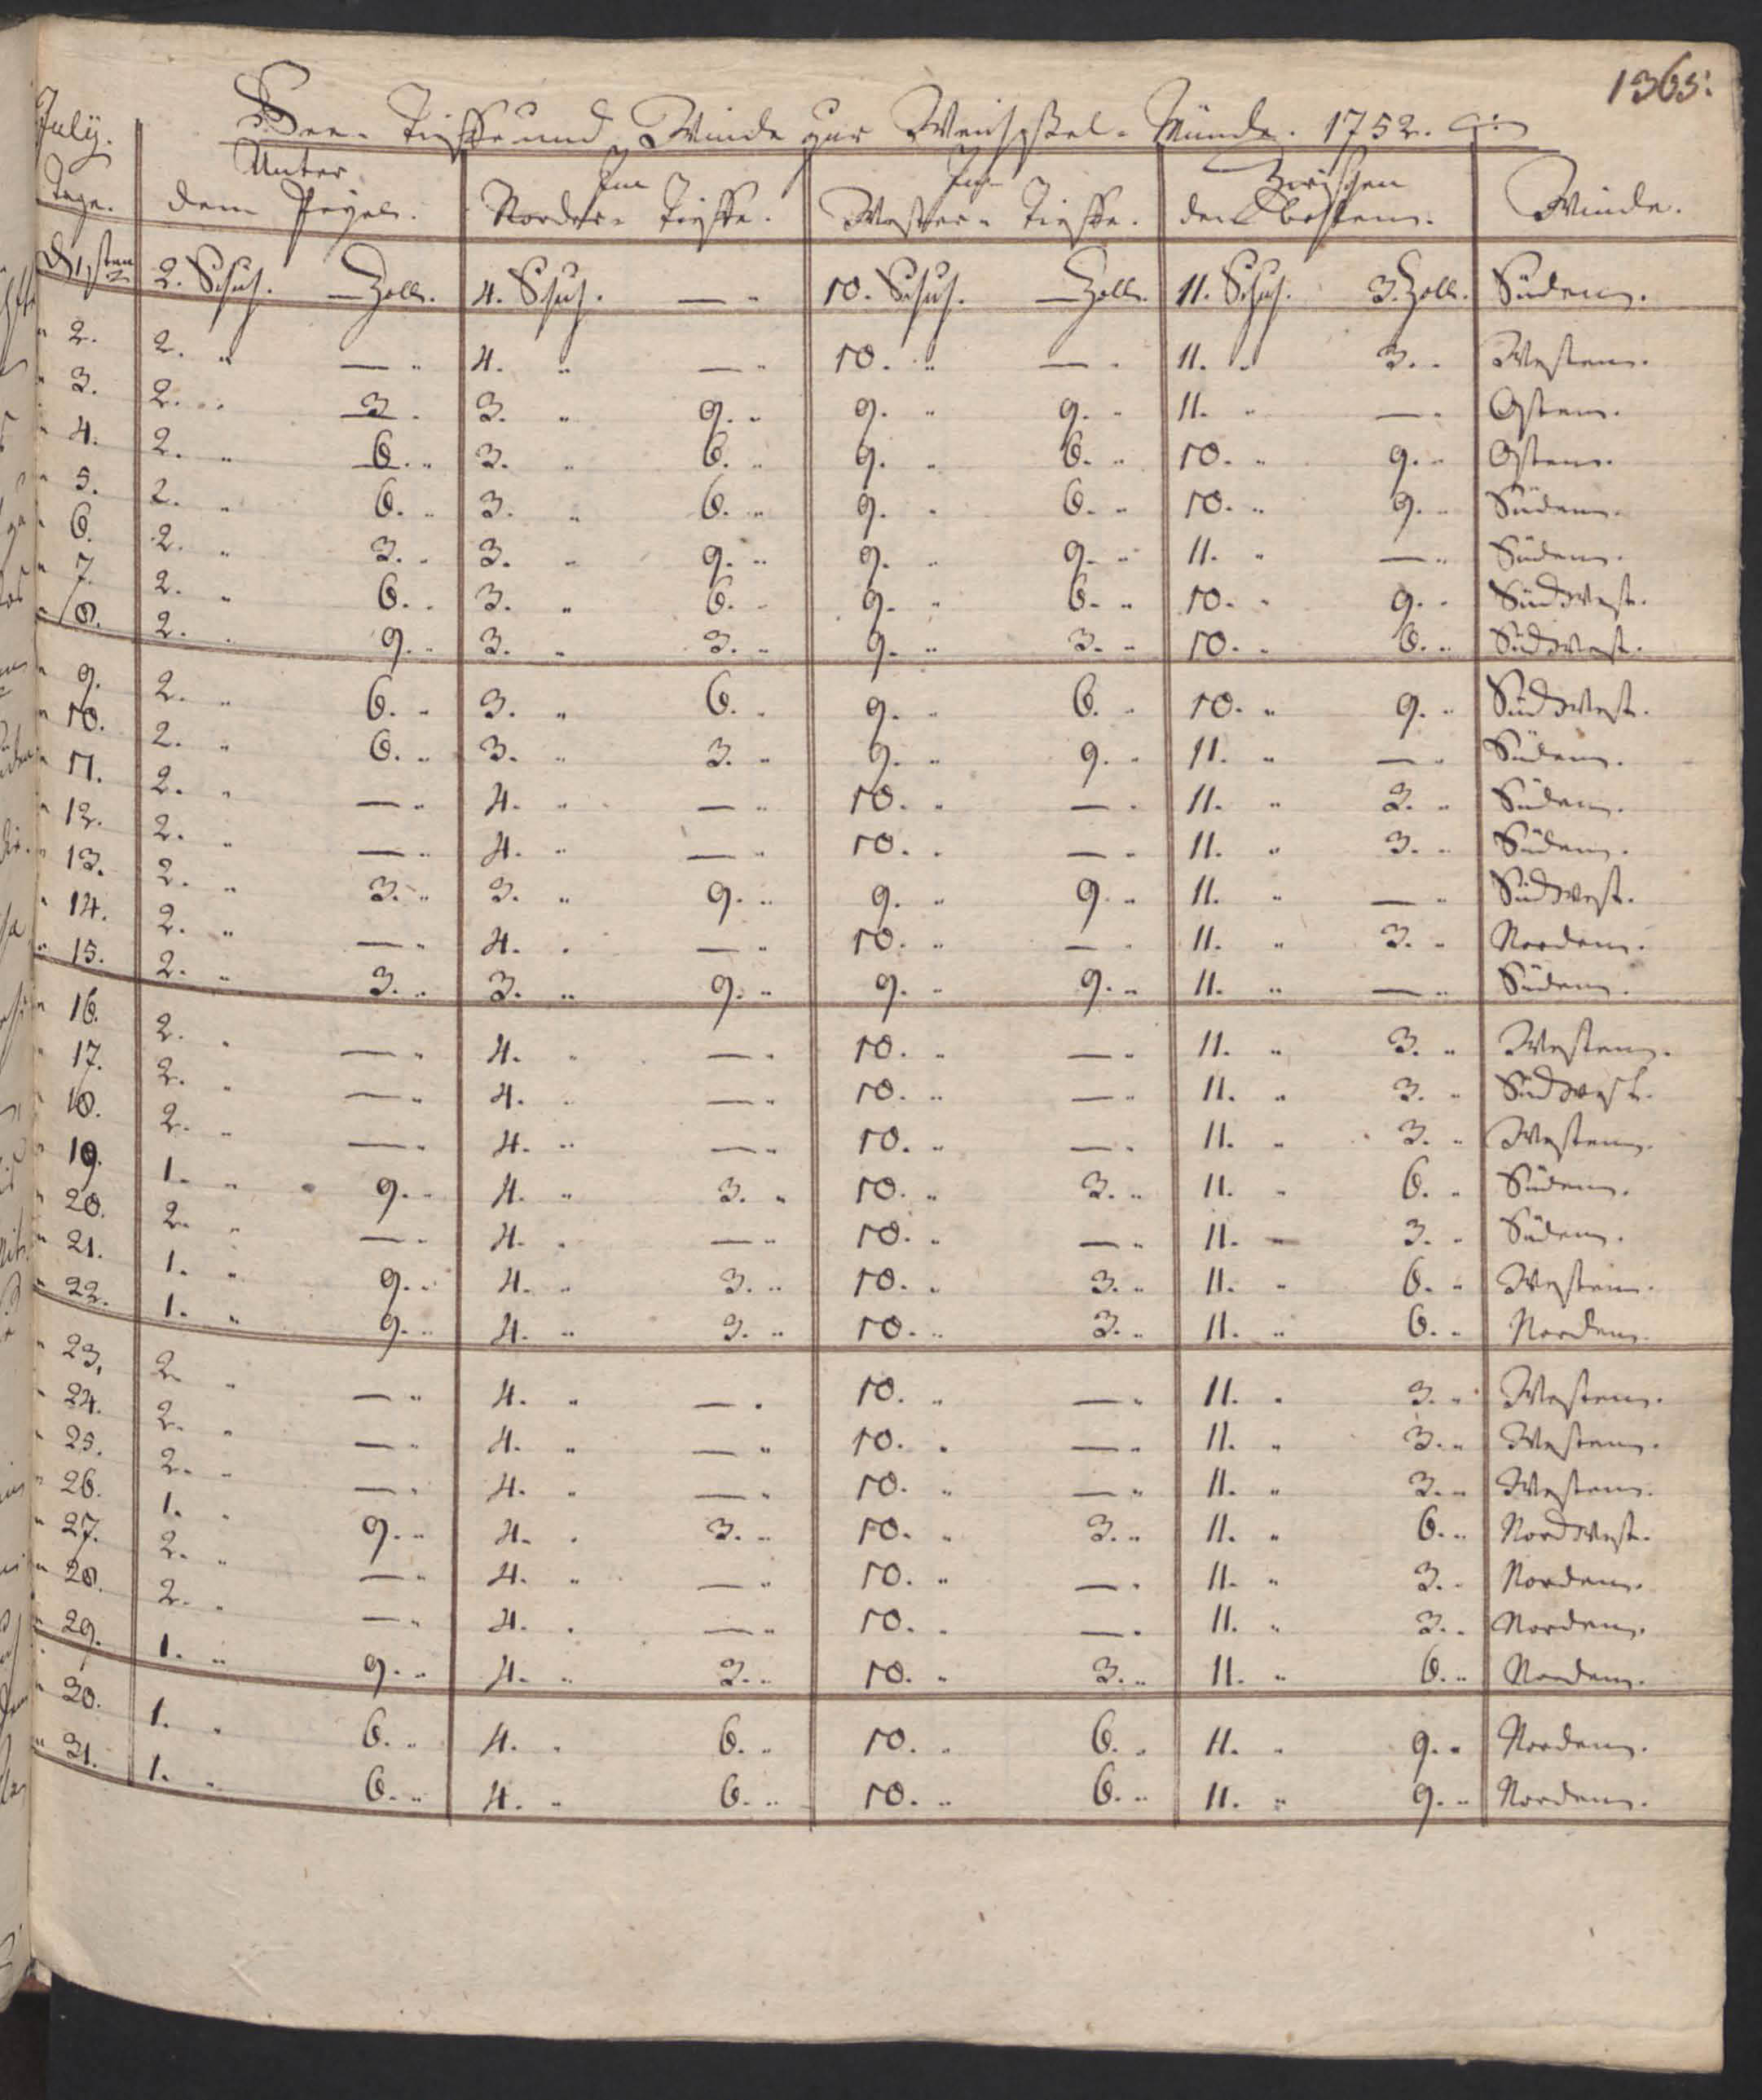 1365:
July. See- Tieffe und Winde zur Weichßel- Münde. 1752.
Unter Im Im Zwischen
Tage. dem Pegel. Norder- Tieffe. Wester- Tieffe. den Winde.
D 1sten 2. Schuh. — Zoll. 4. Schuh. — " 10. Schuh. — Zoll. 11. Schuh. 3. Zoll. Süden.
" 2. 2. " — " 4. " — " 10. " — " 11. " 3. " Westen.
" 3. 2. " 3. 3. " 9. " 9. " 9. " 11. " — " Osten.
" 4. 2. " 6. " 3. " 6. " 9. " 6. " 10. " 9. " Osten.
" 5. 2. " 6. " 3. " 6. " 9. " 6. " 10. " 9. " Süden.
" 6. 2. " 3. " 3. " 9. " 9. " 9. " 11. " — " Süden.
" 7. 2. " 6. " 3. " 6. " 9. " 6. " 10. " 9. " Südwest.
" 8. 2. " 9. " 3. " 3. " 9. " 3. " 10. " 6. " Südwest.
" 9. 2. " 6. " 3. " 6. " 9. " 6. " 10. " 9. " Südwest.
" 10. 2. " 6. " 3. " 3. " 9. " 9. " 11. " — " Süden.
" 11. 2. " — " 4. " — " 10. " — " 11. " 3. " Süden.
" 12. 2. " — " 4. " — " 10. " — " 11. " 3. " Süden.
" 13. 2. " 3. " 3. " 9. " 9. " 9. " 11. " — " Südwest.
" 14. 2. " — " 4. " — " 10. " — " 11. " 3. " Norden.
" 15. 2. " 3. " 3. " 9. " 9. " 9. " 11. " — " Süden.
" 16. 2. " — " 4. " — " 10. " — " 11. " 3. " Westen.
" 17. 2. " — " 4. " — " 10. " — " 11. " 3. " Südwest.
" 18. 2. " — " 4. " — " 10. " — " 11. " 3. " Westen.
" 19. 1. " 9. " 4. " 3. " 10. " 3. " 11. " 6. " Süden.
" 20. 2. " — " 4. " — " 10. " — " 11. " 3. " Süden.
" 21. 1. " 9. " 4. " 3. " 10. " 3. " 11. " 6. " Westen.
" 22. 1. " 9. " 4. " 3. " 10. " 3. " 11. " 6. " Norden.
" 23. 2. " — " 4. " — " 10. " — " 11. " 3. " Westen.
" 24. 2. " — " 4. " — " 10. " — " 11. " 3. " Westen.
" 25. 2. " — " 4. " — " 10. " — " 11. " 3. " Westen.
" 26. 1. " 9. " 4. " 3. " 10. " 3. " 11. " 6. " Nordwest.
" 27. 2. " — " 4. " — " 10. " — " 11. " 3. " Norden.
" 28. 2. " — " 4. " — " 10. " — " 11. " 3. " Norden.
" 29. 1. " 9. " 4. " 3. " 10. " 3. " 11. " 6. " Norden.
" 30. 1. " 6. " 4. " 6. " 10. " 6. " 11. " 9. " Norden.
" 31. 1. " 6. " 4. " 6. " 10. " 6. " 11. " 9. " Norden.